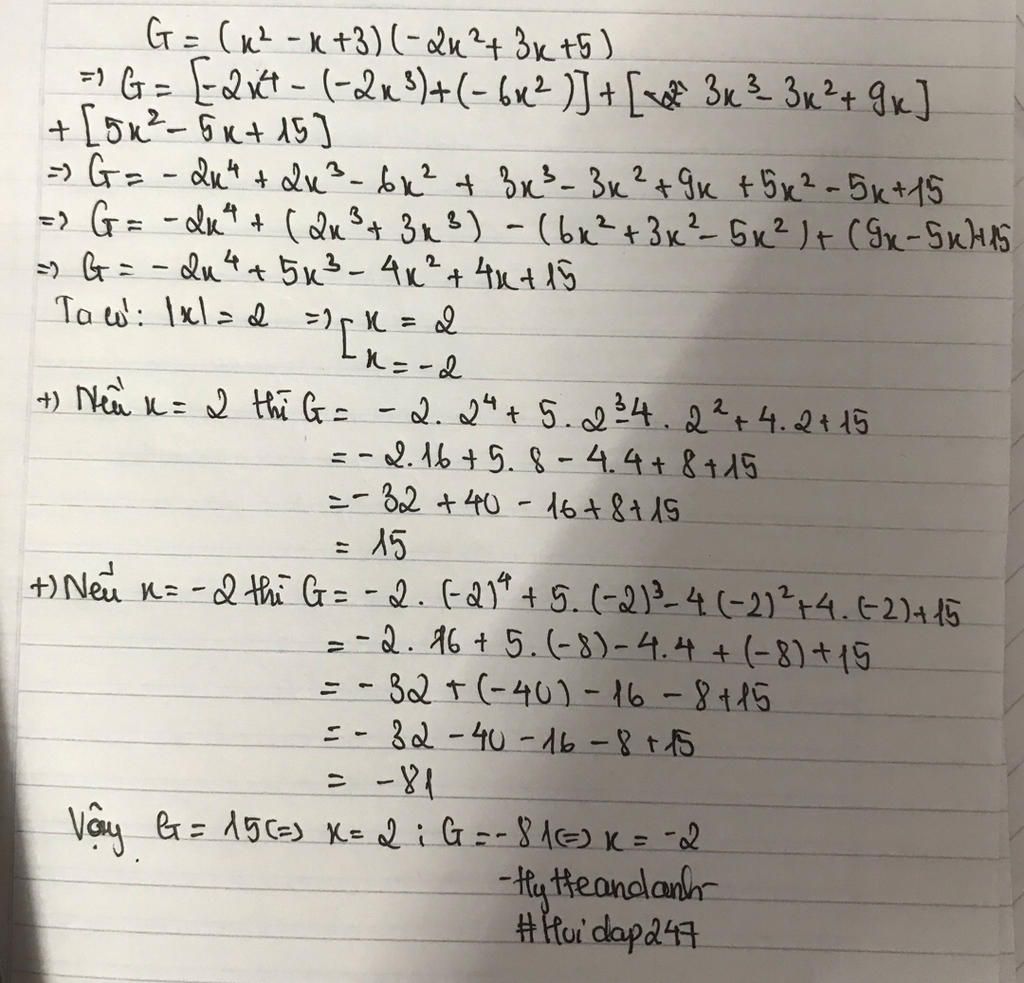 G = (x² - x + 3)(-2x² + 3x + 5)
=> G = [-2x⁴ - (-2x³) + (-6x²)] + [3x³ - 3x² + 9x]
+ [5x² - 5x + 15]
=> G = - 2x⁴ + 2x³ - 6x² + 3x³ - 3x² + 9x + 5x² - 5x + 15
=> G = - 2x⁴ + (2x³ + 3x³) - (6x² + 3x² - 5x²) + (9x - 5x) + 15
=> G = - 2x⁴ + 5x³ - 4x² + 4x + 15
Ta có: |x| = 2 => [ x = 2
x = -2
+) Nếu x = 2 thì G = - 2. 2⁴ + 5. 2³ - 4. 2² + 4. 2 + 15
= - 2.16 + 5. 8 - 4.4 + 8 + 15
= - 32 + 40 - 16 + 8 + 15
= 15
+) Nếu x = -2 thì G = - 2. (-2)⁴ + 5. (-2)³ - 4.(-2)² + 4. (-2) + 15
= - 2. 16 + 5. (-8) - 4.4 + (-8) + 15
= - 32 + (-40) - 16 - 8 + 15
= - 32 - 40 - 16 - 8 + 15
= -81
Vậy G = 15 <=> x = 2 ; G = -81 <=> x = -2
-HyHeandanh-
#Hoidap247